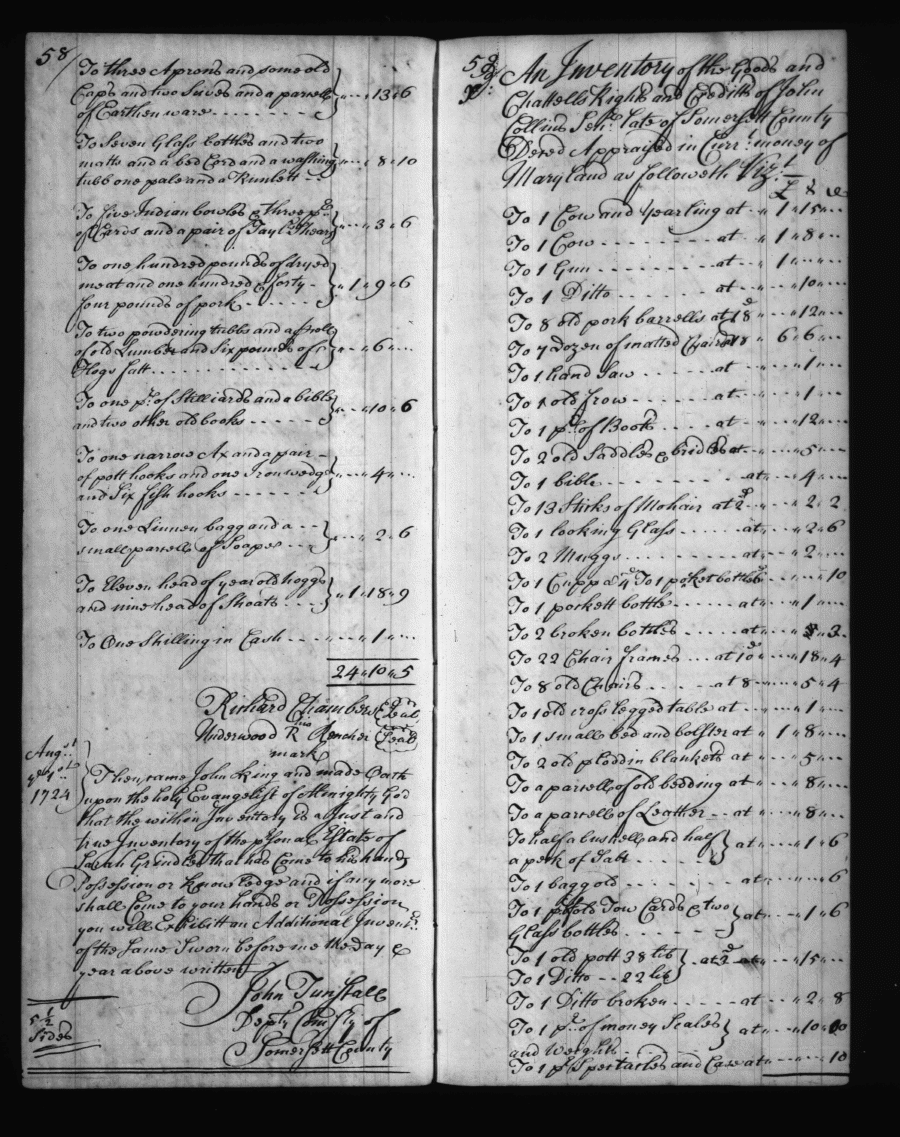 58/
To three Aprons and some old
Caps and two Sives and a parcell
of Earthen ware - - - - - - - - } " - - " 13 " 6
To Seven Glass bottles and two
matts and a bed Cord and a washing
tubb one pale and a Runlett - - } " - - " 8 " 10
To five Indian bowles & three pr.
of Cards and a pair of Taylrs. Shears } " - - " 3 " 6
To one hundred pounds of dryed
meat and one hundred & forty -
four pounds of pork - - - - - } " 1 " 9 " 6
To two powdering tubbs and a
of old Lumber and Six pounds of
Hogs fatt - - - - - - - - - - } " - - " 6 " - -
To one pr. of Stilliards and a bible
and two other old books - - - - } " - - " 10 " 6
To one narrow Ax and a pair -
of pott hooks and one Iron wedge
and Six fish hooks - - - - - - } " - - " 4 " - -
To one Linnen bagg and a - -
small parcell of Soape - - - } " - - " 2 " 6
To Eleven head of year old hoggs
and nine head of Shoats - - - } " 1 " 18 " 9
To One Shilling in Cash - - - " - - " 1 " - -
24 " 10 " 5
Richard Chambers Seal
his
Underwood R Rencher Seal
mark
Augst.
ye 1st
1724
Then came John King and made Oath
upon the holy Evangelist of Almighty God
that the within Inventory is a Just and
true Inventory of the psonal Estate of
Sarah Grindles that has Come to his hands
Possession or Knowledge and if any more
shall Come to your hands or Possession
you will Exhibitt an Additional Inventy.
of the Same Sworn before me the day &
year above written
John Tunstall
Depty Comsry of
Somersett County
5 1/2
Sides
59/
An Inventory of the Goods and
Chattells Rights and Creditts of John
Collins Senr. late of Somersett County
Dèced Appraysed in Currt. money of
Maryland as followeth Vizt.
£ S d
To 1 Cow and Yearling at - " 1 " 15 " - -
To 1 Cow - - - - - - at - " 1 " 8 " - -
To 1 Gun - - - - - - at - " 1 " - - - -
To 1 Ditto - - - - - at - " - - " 10 " - -
To 8 old pork barrells at 18d " - - " 12 " - -
To 7 Dozen of matted Chairs 18 " 6 " 6 " - -
To 1 hand Saw - - - - at - " - - " 1 " - -
To 1 old frow - - - - at - " - - " 1 " - -
To 1 pr. of Boots - - - at - " - - " 12 " - -
To 2 old Saddles & bridles at - " - - " 5 " - -
To 1 bible - - - - - at " - - " 4 " - -
To 13 Sticks of Mohair at 2d " - - " 2 " 2
To 1 looking Glass - - - at " - - " 2 " 6
To 2 Muggs - - - - - at " - - " 2 " - -
To 1 Cupp a 4d To 1 pocket bottle 6d " - - - - " 10
To 1 pockett bottle - - - at " - - " 1 " - -
To 2 broken bottles - - - at " - - " - - " 3
To 22 Chair frames - - at 10d " - - " 18 " 4
To 8 old Chairs - - - - at 8 " - - " 5 " 4
To 1 old cross legged table at " - - " 1 " - -
To 1 smalle bed and bolster at " 1 " 8 " - -
To 2 old plodd in blanketts at " - - " 5 " - -
To a parcell of old bedding at " - - " 8 " - -
To a parcell of Leather - - at " - - " 8 " - -
To half a bushell and half
a peck of Salt - - - - - } at " - - " 1 " 6
To 1 bagg old - - - - - at " - - - - " 6
To 1 pr of old Tow Cards & two
Glass bottles - - - - - - } at " - - " 1 " 6
To 1 old pott 38 lib
To 1 Ditto - - 22 lib } at 3d " - - " 15 " - -
To 1 Ditto broken - - - at " - - " 2 " 8
To 1 pr. of money Scales
and Weights - - - - } at " - - " 10 "
To 1 pr Spectacles and Case at " - - - - " 10